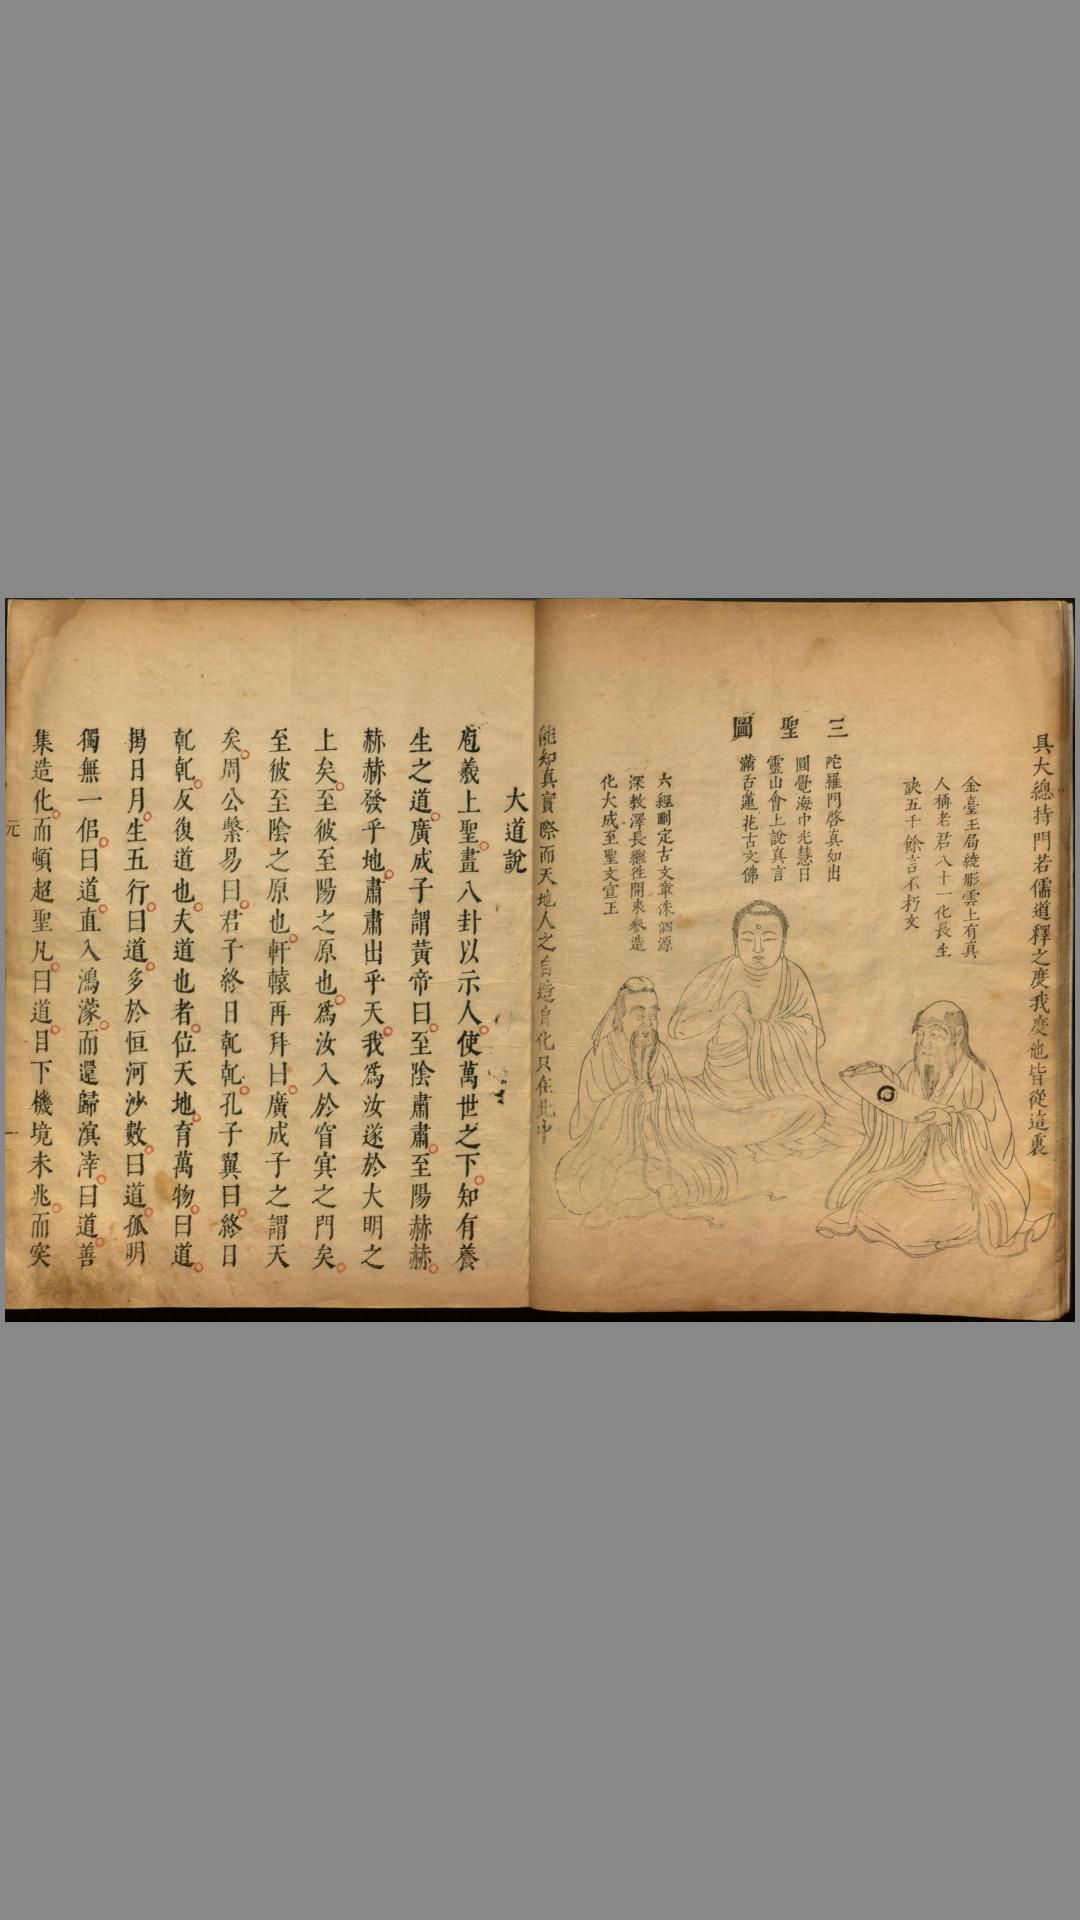 具大總持門若儒道釋之度我度他皆從這裏
金臺玉局繞彤雲上有真
人稱老君八十一化長生
訣五千餘言不朽文
三聖圖
陀羅門啓真如出
圓覺海中光慧日
靈山會上說真言
滿舌蓮花古文佛
六經刪定古文章洙泗源
深教澤長繼徃開來參造
化大成至聖文宣王
能知真實際而天地人之自造自化只在此中
大道說
庖羲上聖畫八卦以示人使萬世之下知有養
生之道廣成子謂黃帝曰至陰肅肅至陽赫赫
赫赫發乎地肅肅出乎天我爲汝遂於大明之
上矣至彼至陽之原也爲汝入於窅冥之門矣
至彼至陰之原也軒轅再拜曰廣成子之謂天
矣周公繫易曰君子終日乹乹孔子翼曰終日
乹乹反復道也夫道也者位天地育萬物曰道
揭日月生五行曰道多於恒河沙數曰道孤明
獨無一侣曰道直入鴻濛而還歸溟涬曰道善
集造化而頓超聖凡曰道目下機境未兆而突
元
一